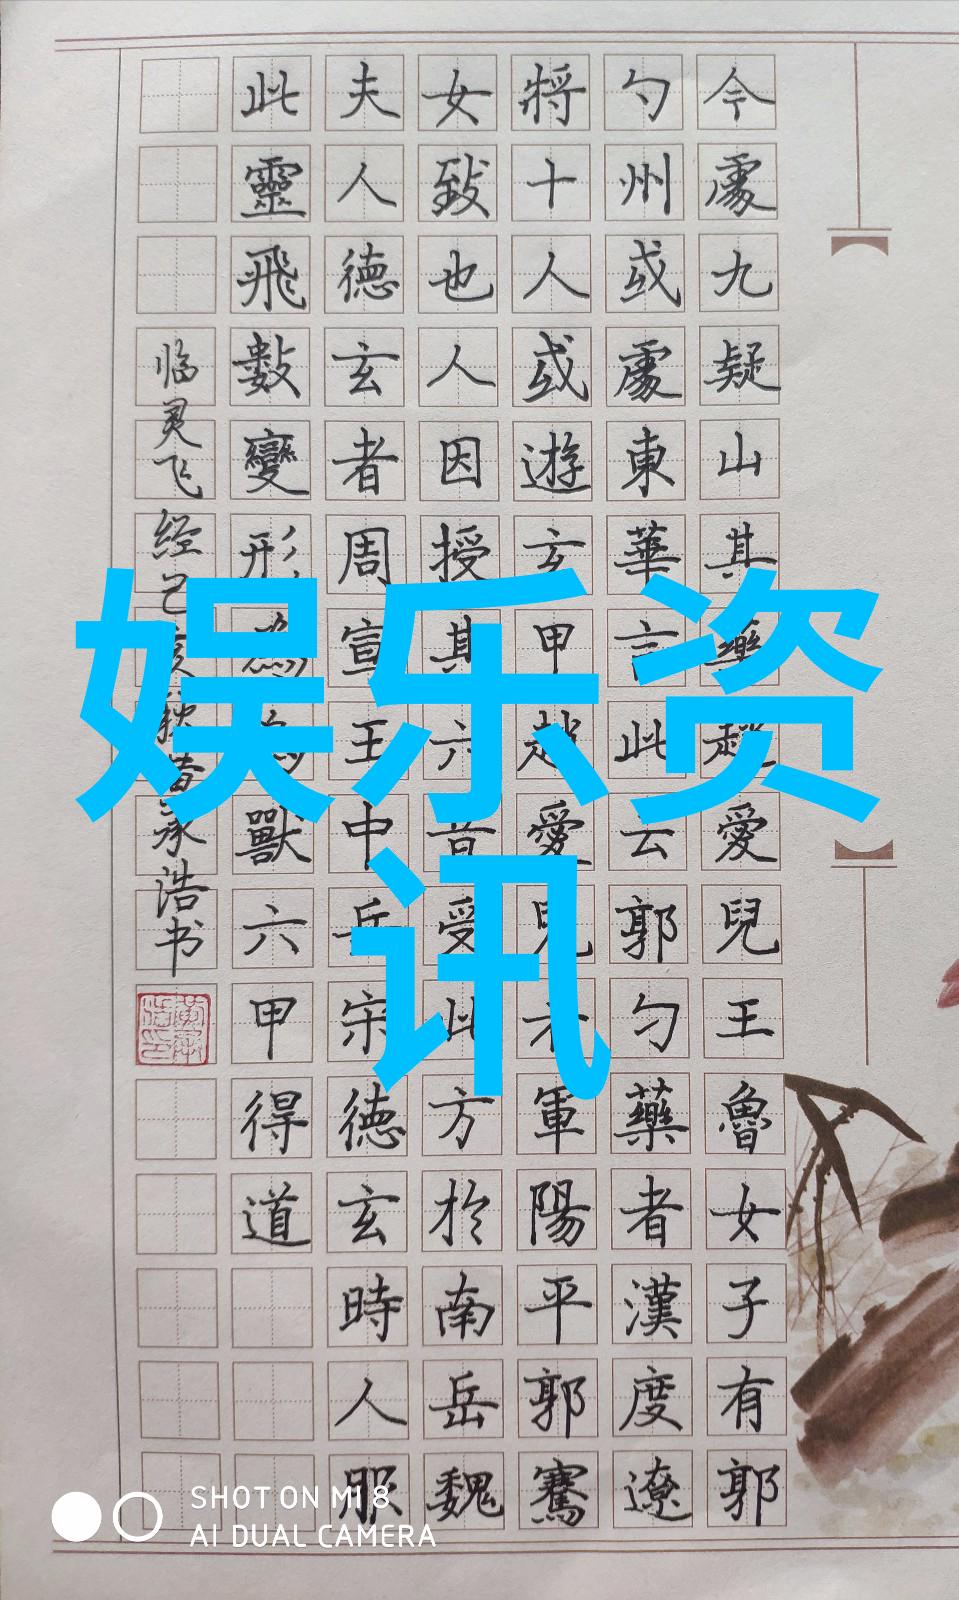 今處九疑山其藥趙愛兒王魯女子有郭
勺州或處東華言此云郭勺藥者漢度遼
將十人或遊玄甲趙愛兒軍陽平郭騫
女致也人因授其六音受此方於南岳魏
夫人德玄者周宣王中岳宋德玄時人服
此靈飛數變形為獸六甲得道
临灵飞经己亥秋浩书
娱乐资
讯
SHOT ON MI 8
AI DUAL CAMERA